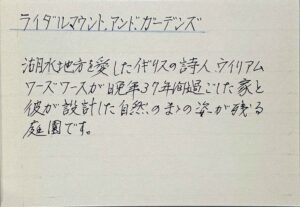 ライダルマウント.アンド.ガーデンズ
湖水地方を愛したイギリスの詩人.ウイリアム
ワーズワースが晩年37年間過ごした家と
彼が設計した自然のまゝの姿が残る
庭園です。